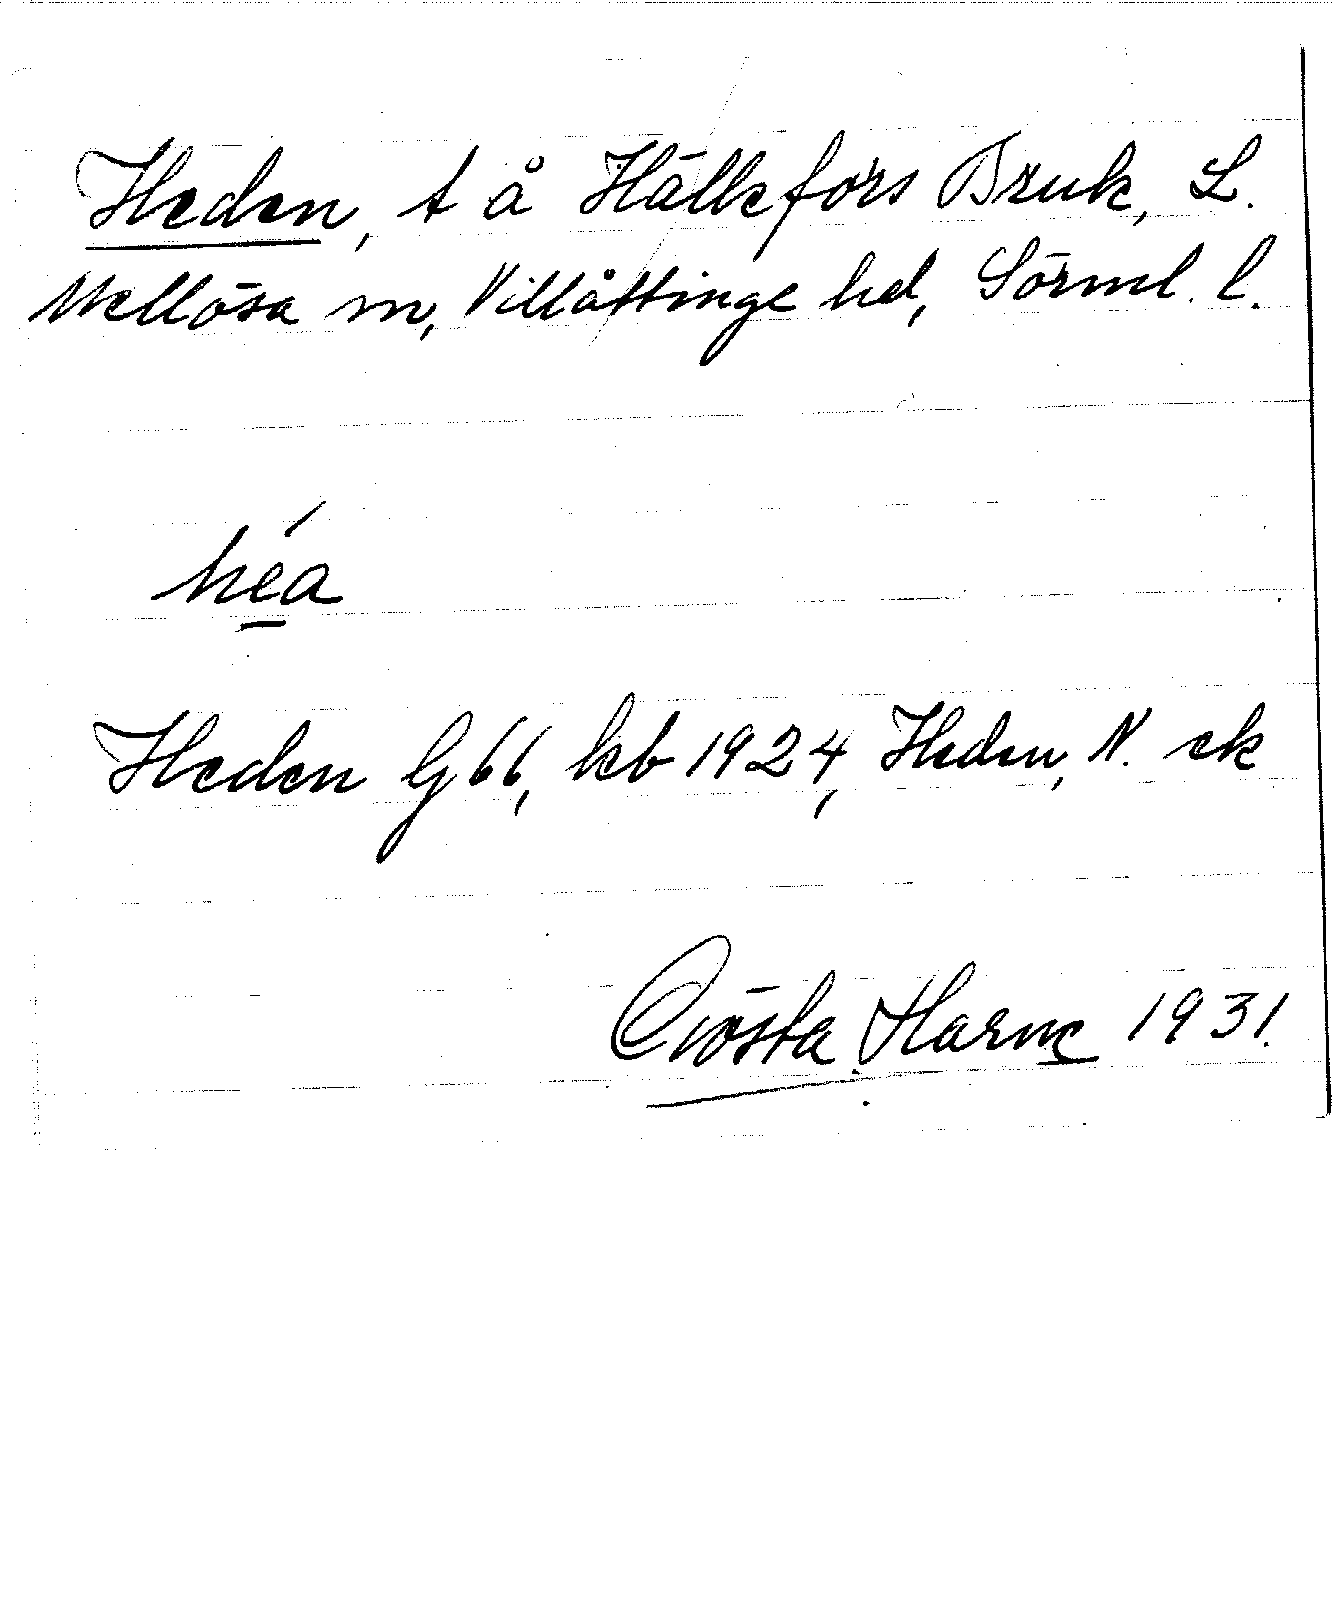 Heden, t å Hällefors Bruk, L.
Mellösa sn, Villåttinge hd, Sörml. l.
héa
Heden G 66, kb 1924, Heden, N. ek
Gösta Harne 1931.